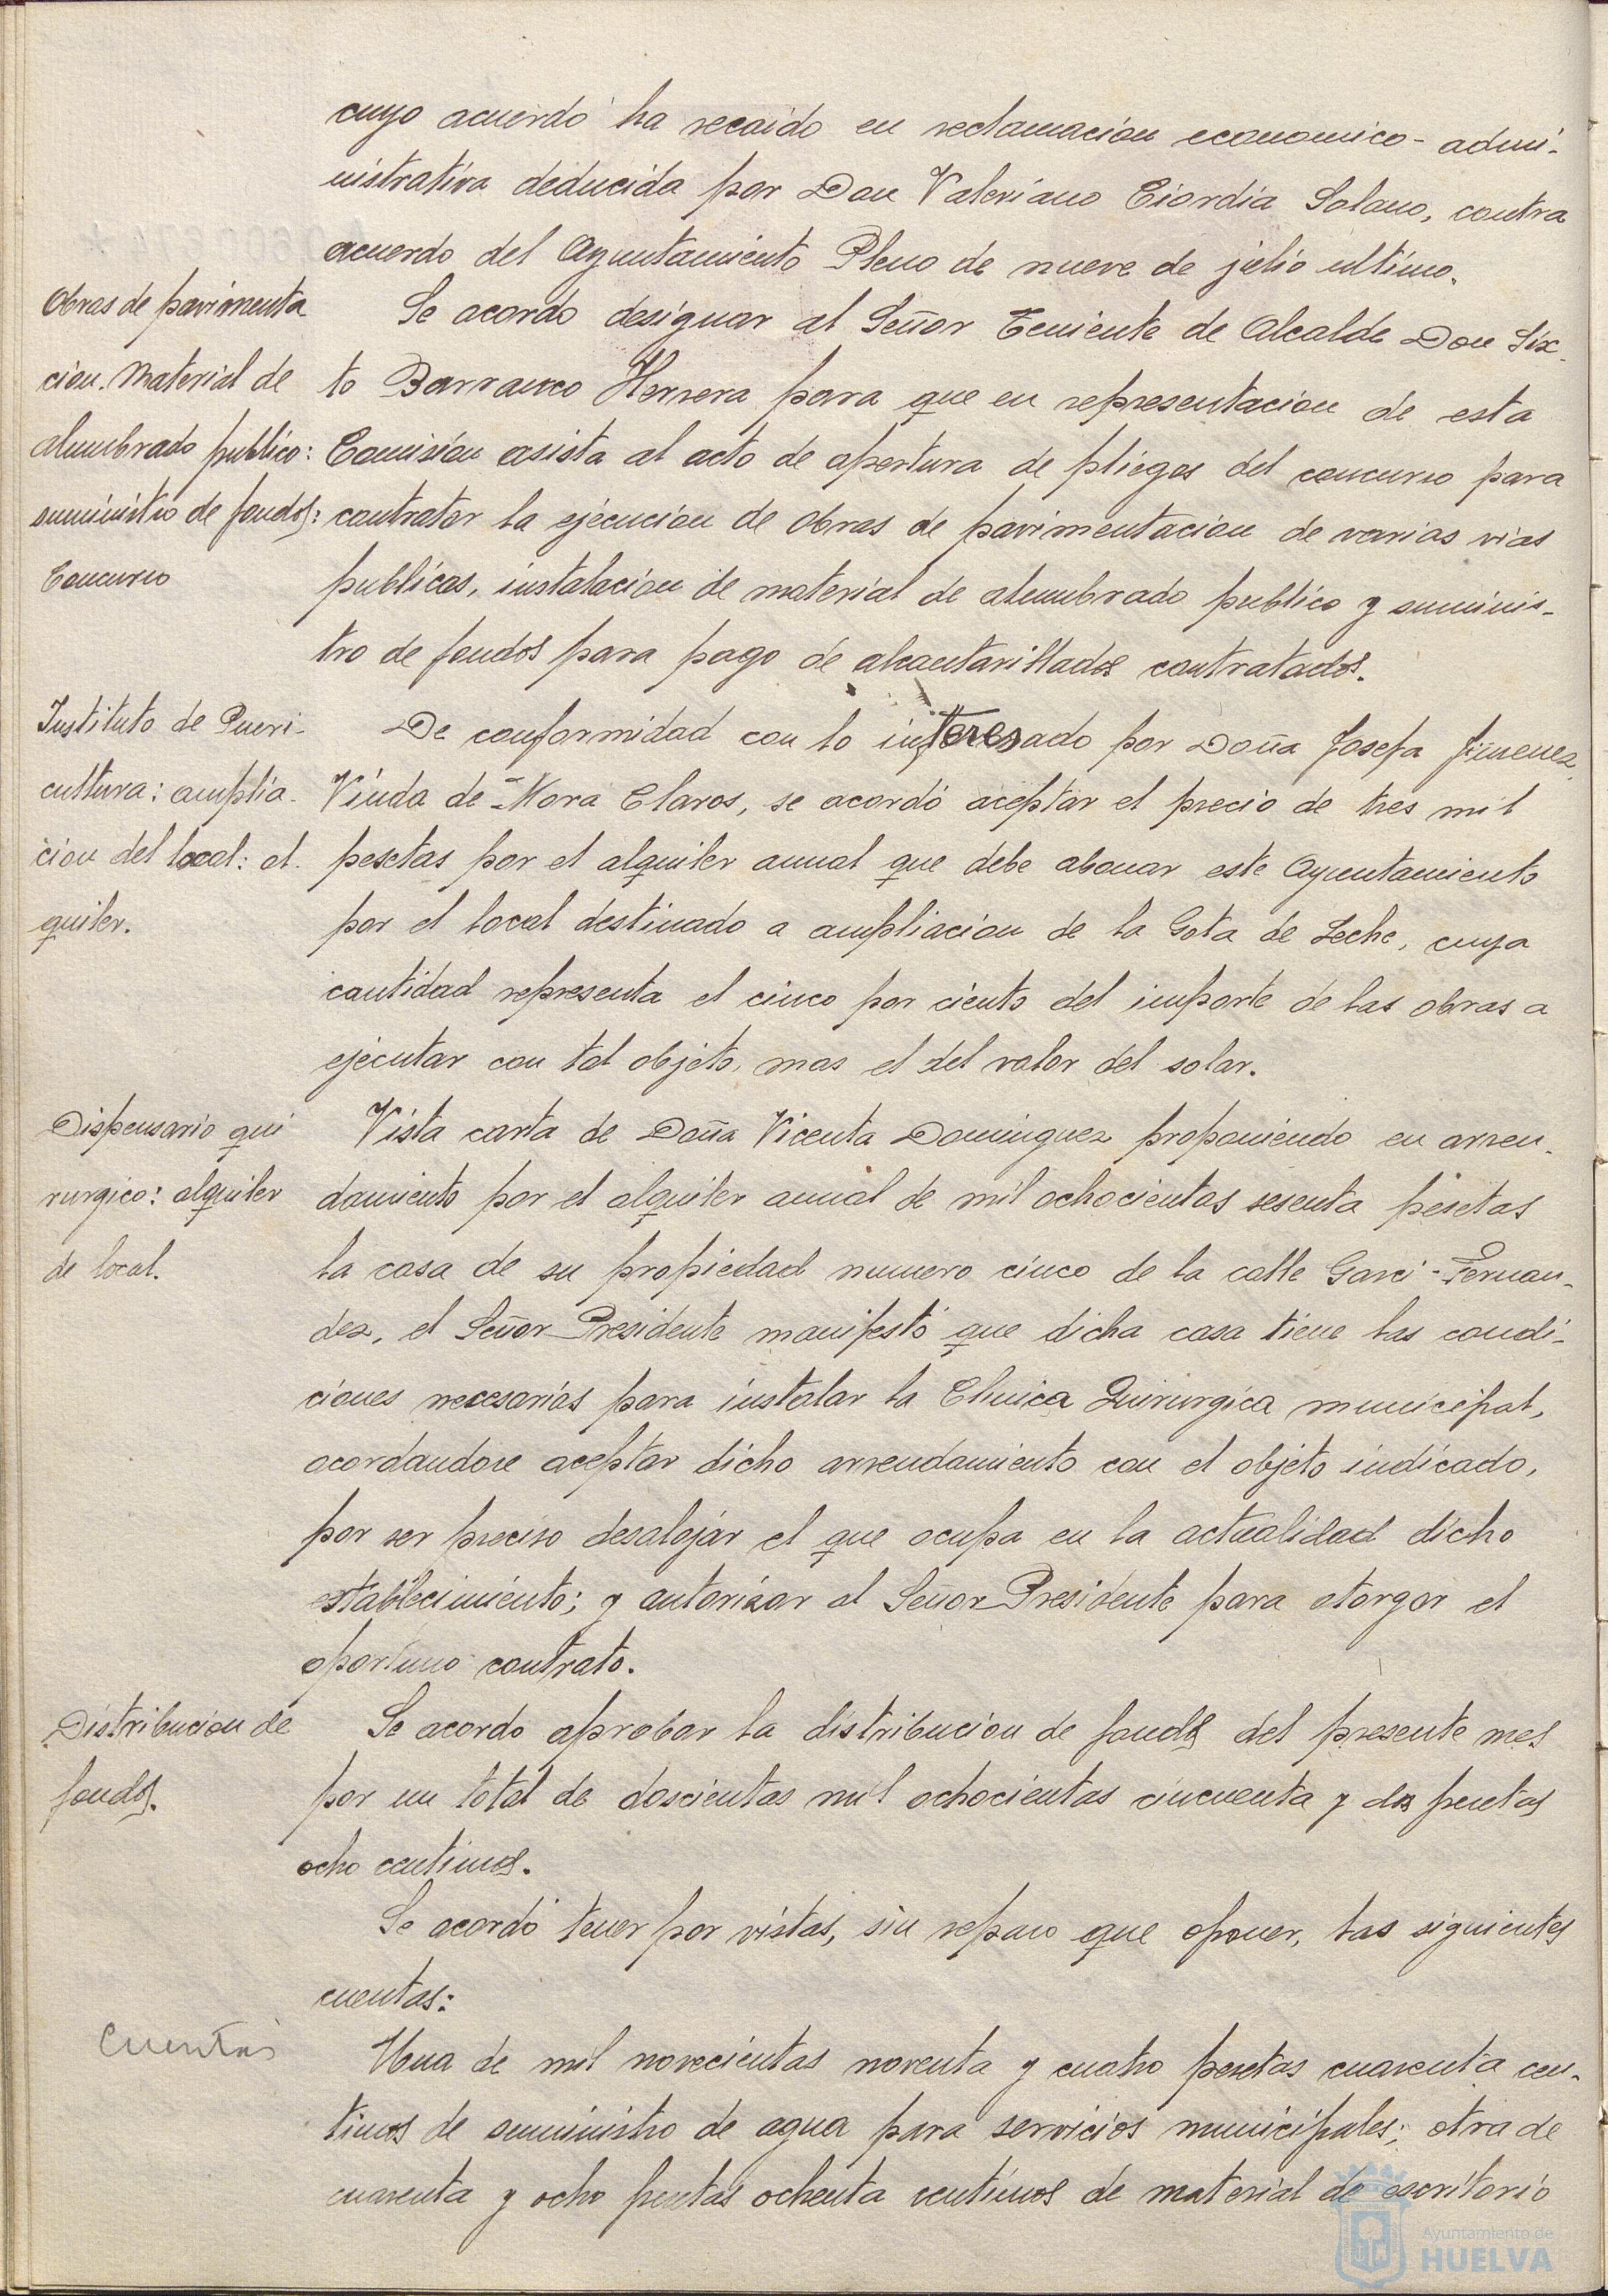 cuyo acuerdo ha recaido en reclamacion economico-admi-
nistrativa deducida por Don Valeriano Ciordia Solano, contra
acuerdo del Ayuntamiento Pleno de nueve de julio ultimo.
Obras de pavimenta
cion. Material de
alumbrado publico:
suministro de fondos:
Concurso
Se acordo designar al Señor Teniente de Alcalde Don Six-
to Barranco Herrera para que en representacion de esta
Comisión asista al acto de apertura de pliegos del concurso para
contratar la ejecucion de obras de pavimentacion de varias vias
publicas, instalacion de material de alumbrado publico y suminis-
tro de fondos para pago de alcantarillados contratados.
Instituto de Pueri-
cultura: amplia-
cion del local: al-
quiler.
De conformidad con lo interesado por Doña Josefa Jimenez,
Viuda de Mora Claros, se acordó aceptar el precio de tres mil
pesetas por el alquiler anual que debe abonar este Ayuntamiento
por el local destinado a ampliacion de la Gota de Leche, cuya
cantidad representa el cinco por ciento del importe de las obras a
ejecutar con tal objeto, mas el del valor del solar.
Dispensario qui
rurgico: alquiler
de local.
Vista carta de Doña Vicenta Dominguez proponiendo en arren-
damiento por el alquiler anual de mil ochocientas sesenta pesetas
la casa de su propiedad numero cinco de la calle Garci-Fernan-
dez, el Señor Presidente manifestó que dicha casa tiene las condi-
ciones necesarias para instalar la Clinica Quirurgica municipal,
acordandose aceptar dicho arrendamiento con el objeto indicado,
por ser preciso desalojar el que ocupa en la actualidad dicho
establecimiento; y autorizar al Señor Presidente para otorgar el
oportuno contrato.
Distribucion de
fondos.
Se acordo aprobar la distribucion de fondos del presente mes
por un total de doscientas mil ochocientas cincuenta y dos pesetas
ocho centimos.
Se acordó tener por vistas, sin reparo que oponer, las siguientes
cuentas:
Cuentas
Una de mil novecientas noventa y cuatro pesetas cuarenta cen-
timos de suministro de agua para servicios municipales; otra de
cuarenta y ocho pesetas ochenta centimos de material de escritorio
Ayuntamiento de
HUELVA